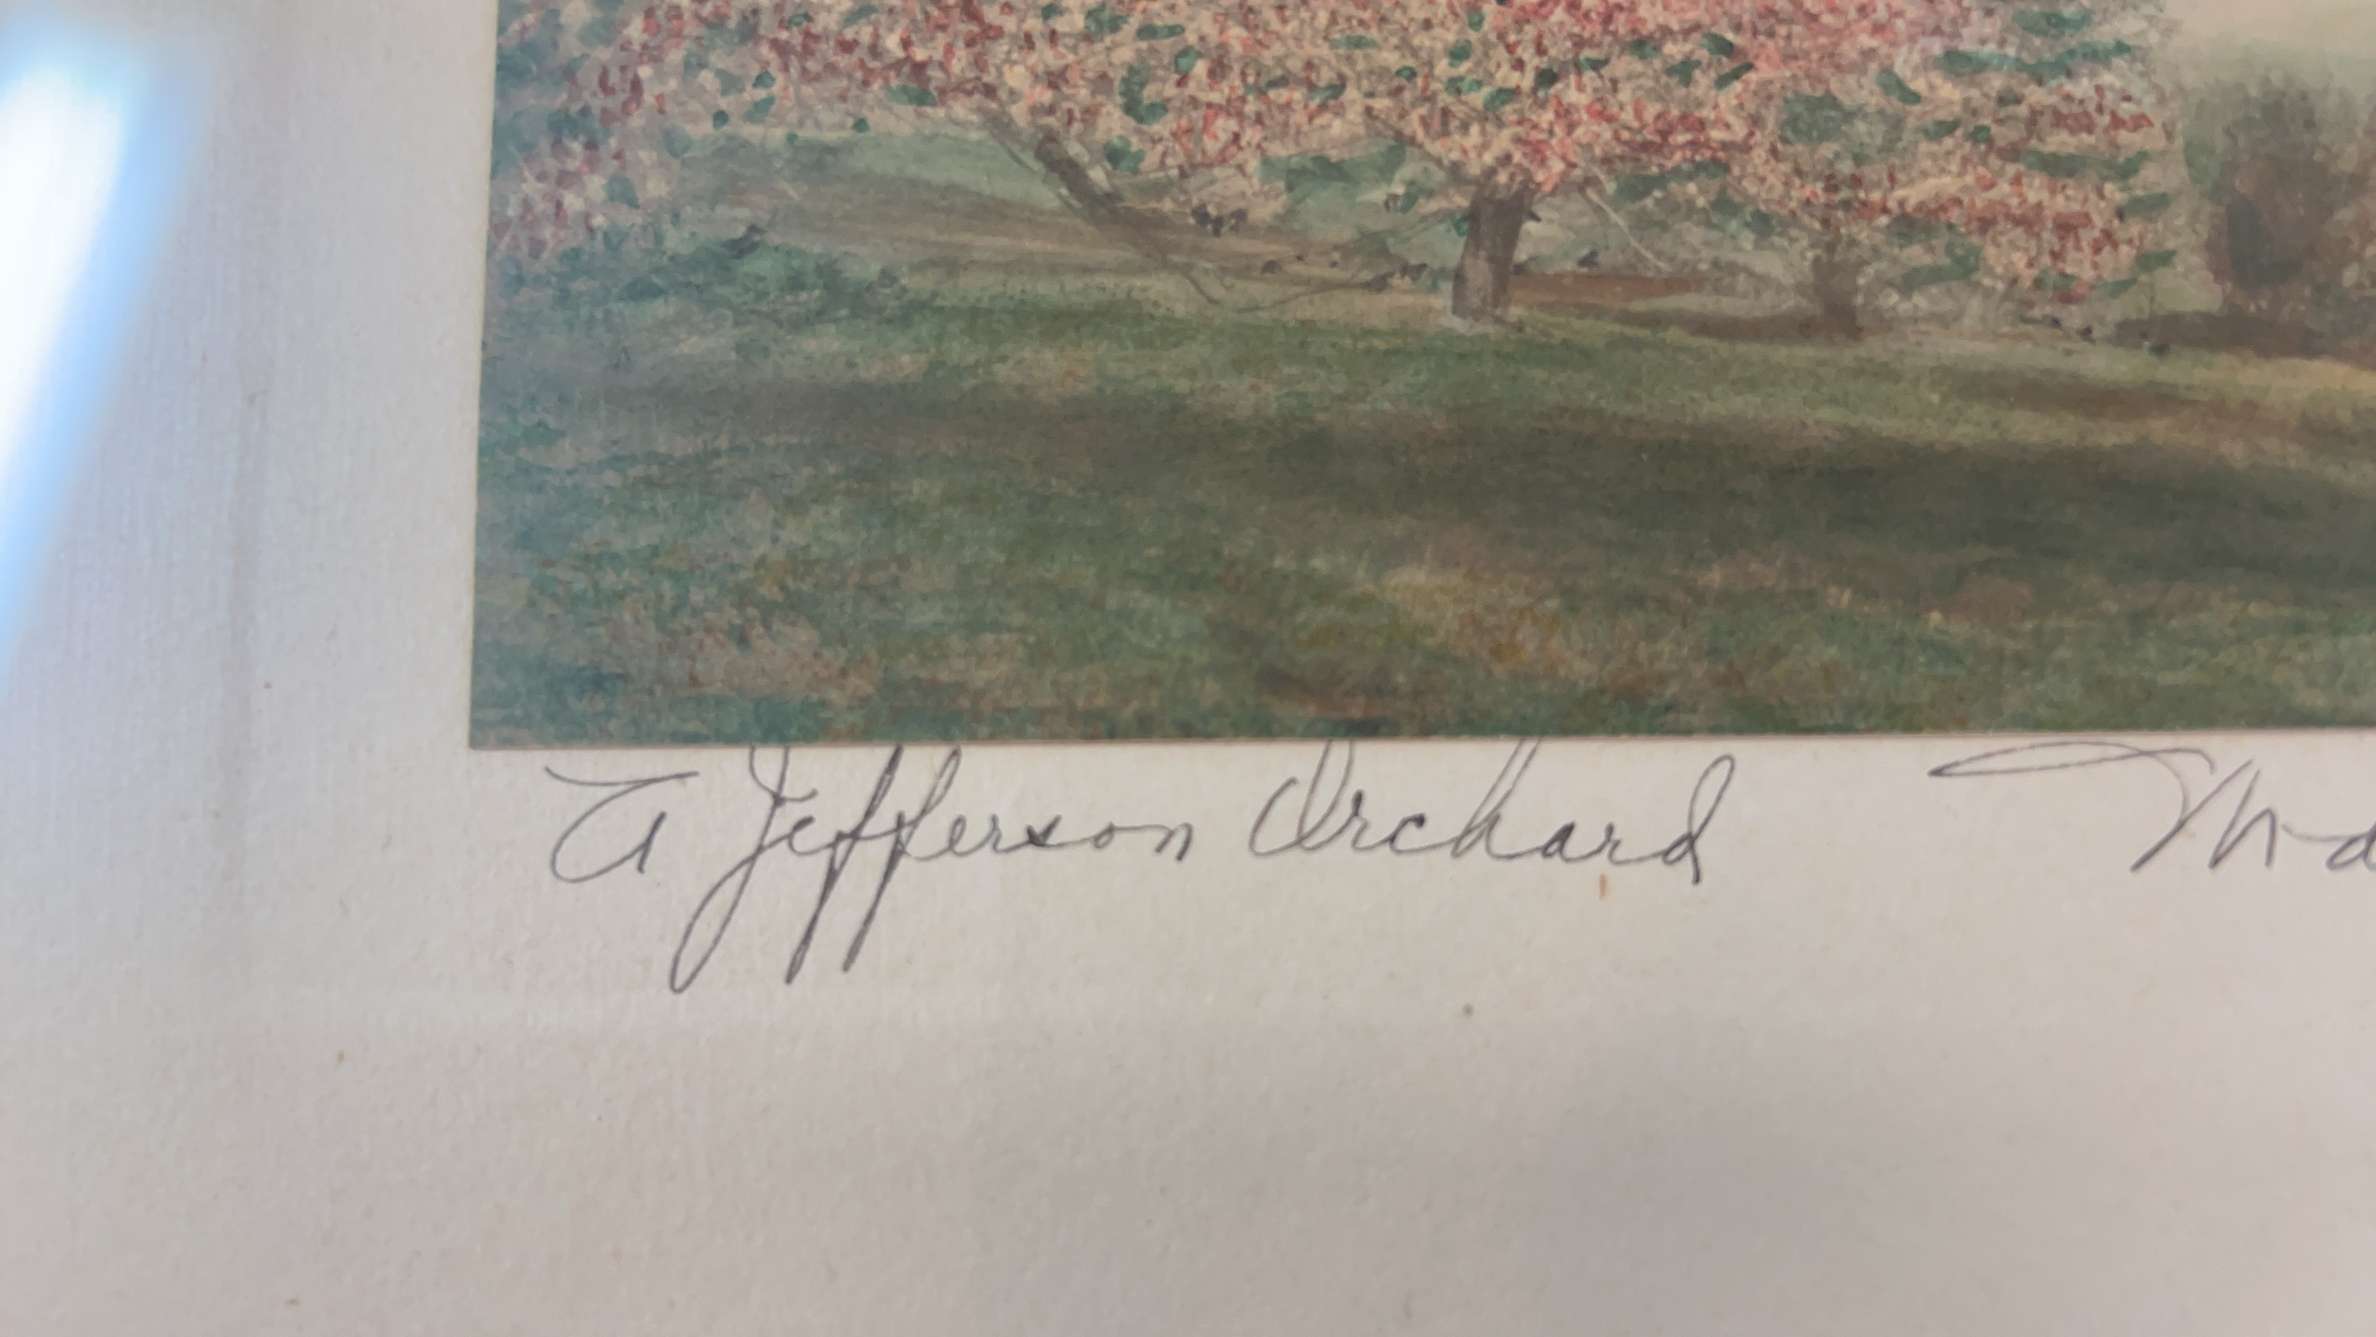 A Jefferson Orchard Ma